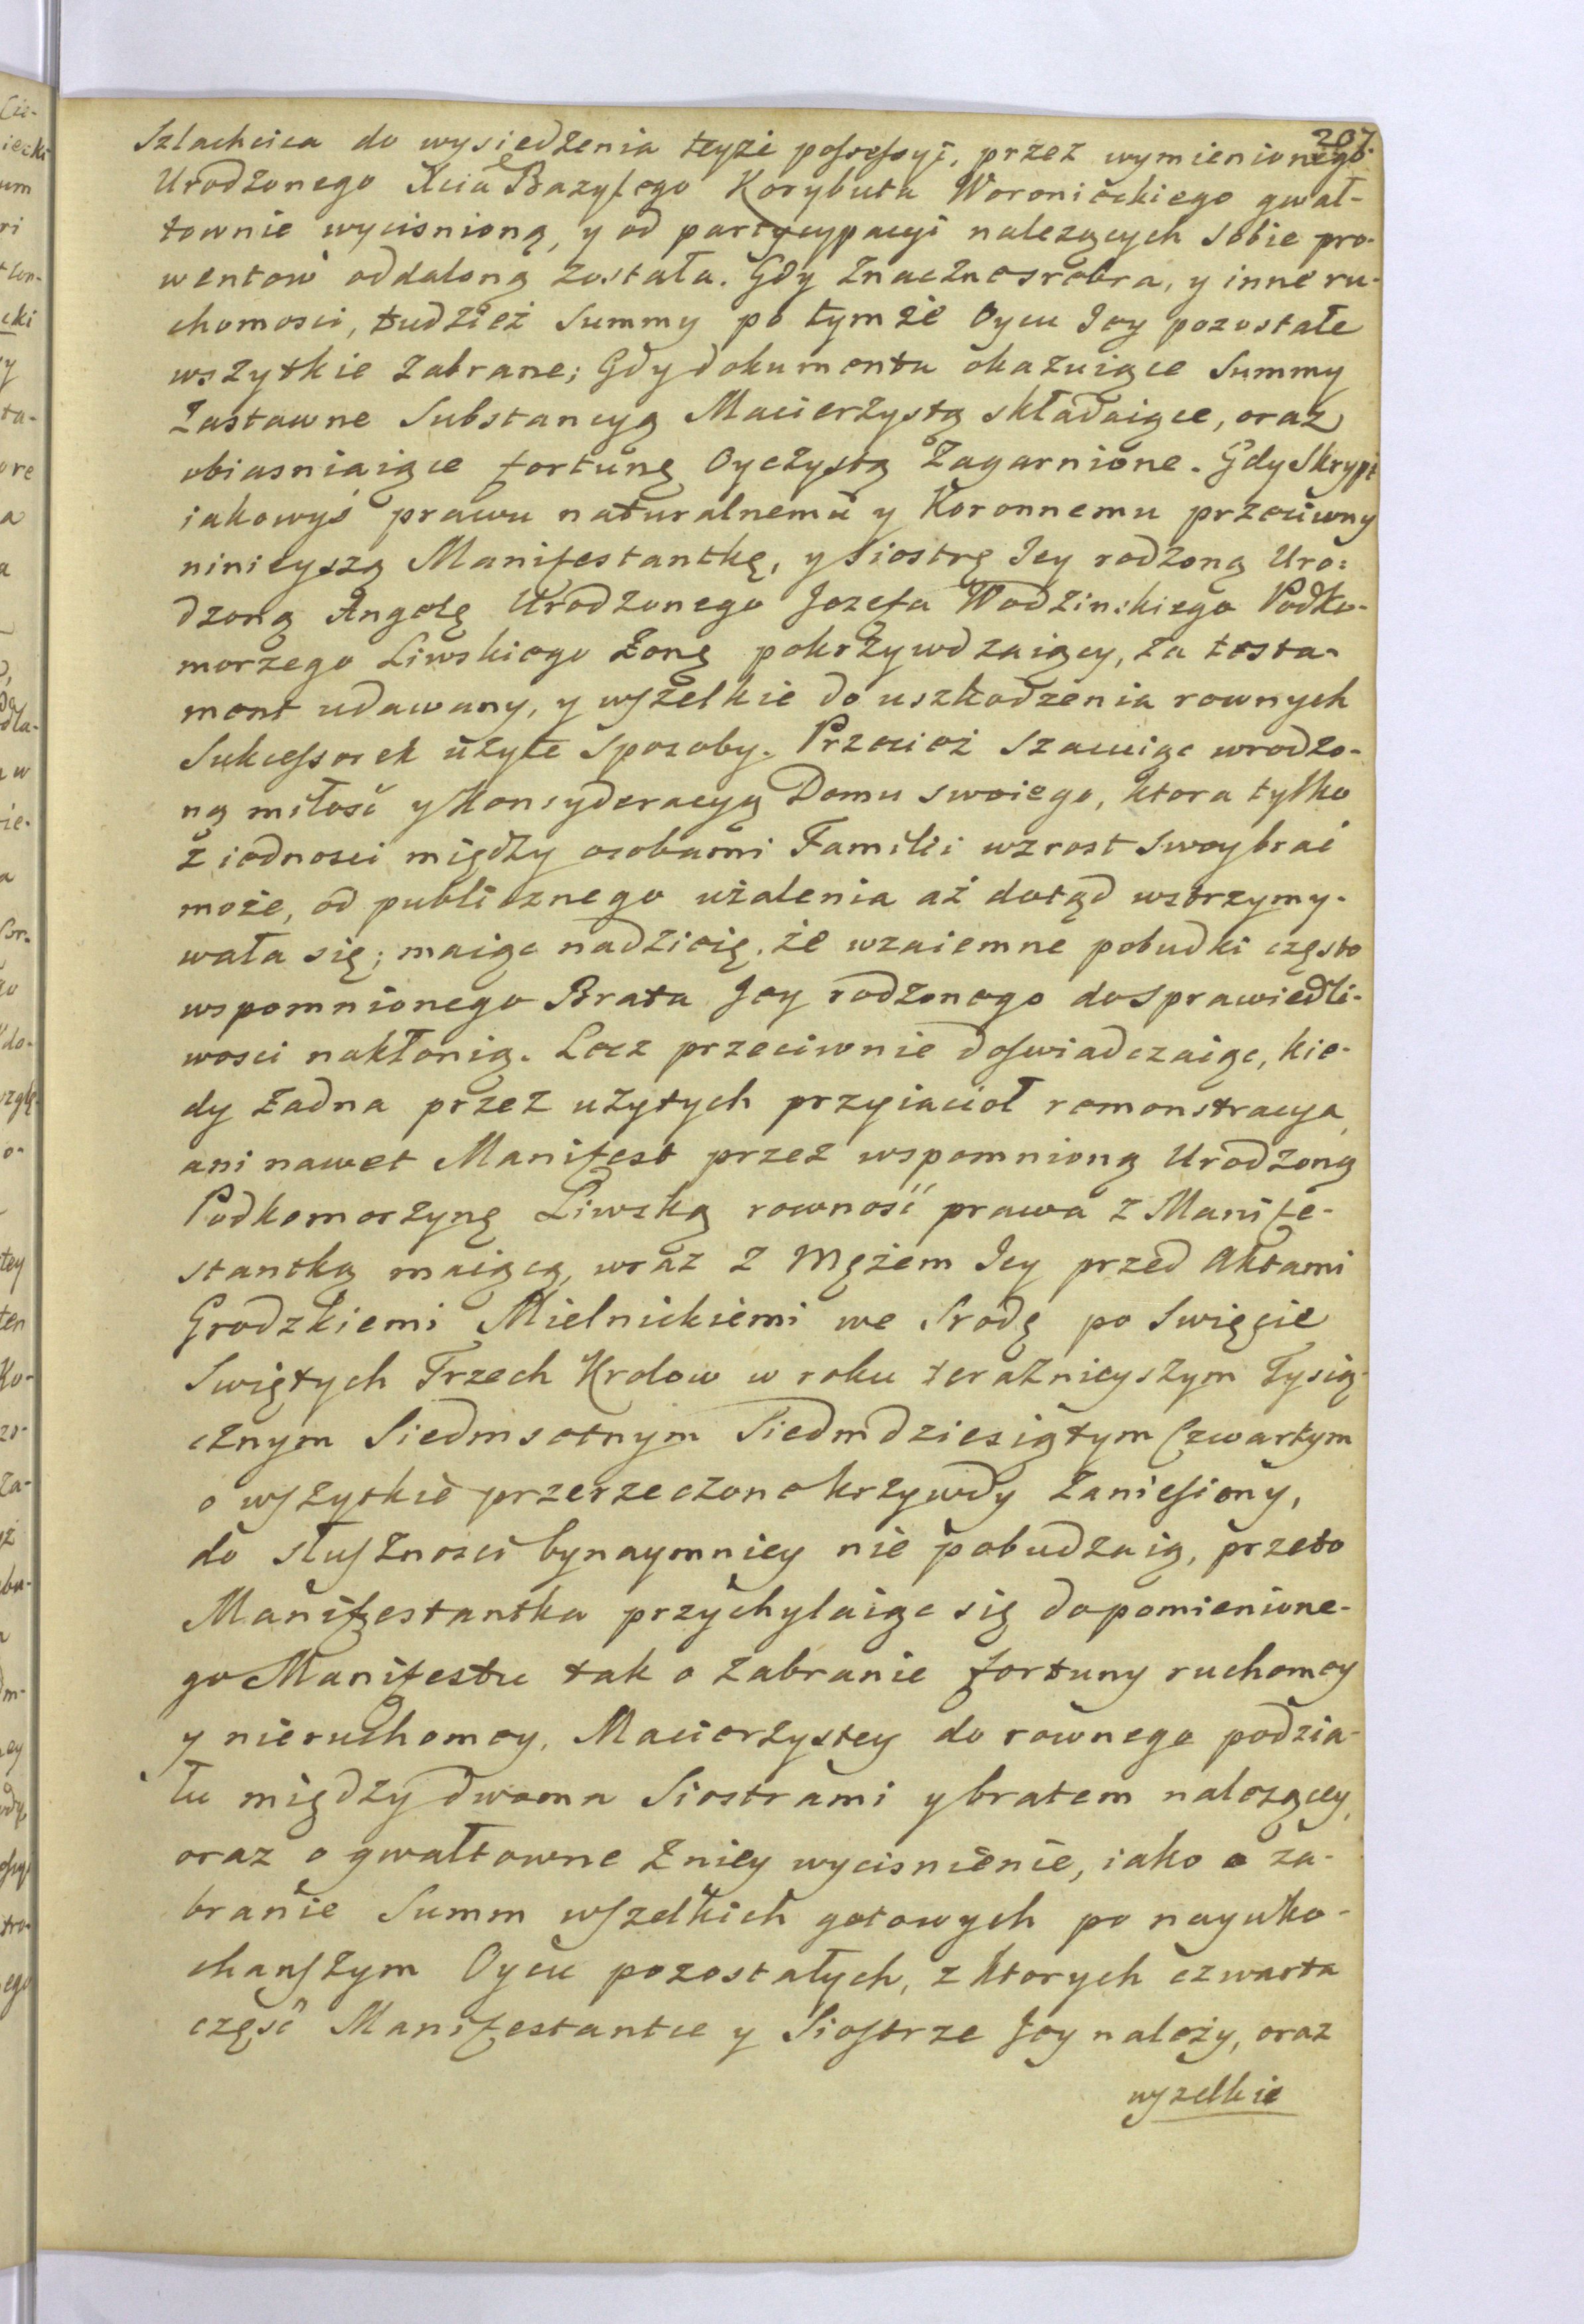 207
Szlachcica do wysiedzenia teyże possessyi, przez wymienionego
Urodzonego Xcia Bazylego Korybuta Woronieckiego gwał-
townie wycisnioną, y od partycypacyi nalezących sobie pro-
wentow oddaloną została. Gdy znaczne srebra, y inne ru-
chomosci, tudzież Summy po tymże Oycu Jey pozostałe
wszytkie zabrane; Gdy dokumenta okazuiące Summy
Zastawne Substancyą Macierzystą składaiące, oraz
obiasniaiące fortunę Oyczystą Zagarnione. Gdy Skrypt
iakowyś prawu naturalnemu y Koronnemu przeciwny
ninieyszą Manifestantkę, y Siostrę Jey rodzoną Uro=
dzoną Angelę Urodzonego Jozefa Wodzinskiego Podko-
morzego Liwskiego Żonę pokrzywdzaiący, za testa-
ment udawany, y wszelkie do uszkodzenia rownych
Sukcessorek użyte Sposoby. Przecież szacuiąc wrodzo-
ną miłość y Konsyderacyą Domu swoiego, ktora tylko
z iednosci między osobami Familii wzrost Swoy brać
może, od publicznego użalenia aż dotąd wstrzymy-
wała się; maiąc nadzieię, że wzaiemne pobudki często
wspomnionego Brata Jey rodzonego do Sprawiedli-
wosci nakłonią. Lecz przeciwnie doswiadczaiąc, kie-
dy żadna przez użytych przyiacioł remonstracya,
ani nawet Manifest przez wspomnioną Urodzoną
Podkomorzynę Liwską rowność prawa z Manife-
stantką maiącą, wraz z Mężem Jey przed Aktami
Grodzkiemi Mielnickiemi we Srodę po Swięcie
Swiętych Trzech Krolow w roku teraznieyszym Tysią-
cznym Siedmsetnym Siedmdziesiątym Czwartym
o wszytkie przerzeczone krzywdy Zaniesiony,
do słuszności bynaymniey nie pobudzaią, przeto
Manifestantka przychylaiąc się do pomienione-
go Manifestu tak o zabranie fortuny ruchomey
y nieruchomey, Macierzystey do rownego podzia-
łu między dwoma Siostrami y bratem nalezącey,
oraz o gwałtowne z niey wycisnienie, iako o za-
branie Summ wszelkich gotowych po nayuko-
chanszym Oycu pozostałych, z ktorych czwarta
część Manifestantce y Siostrze Jey należy, oraz
wszelkie